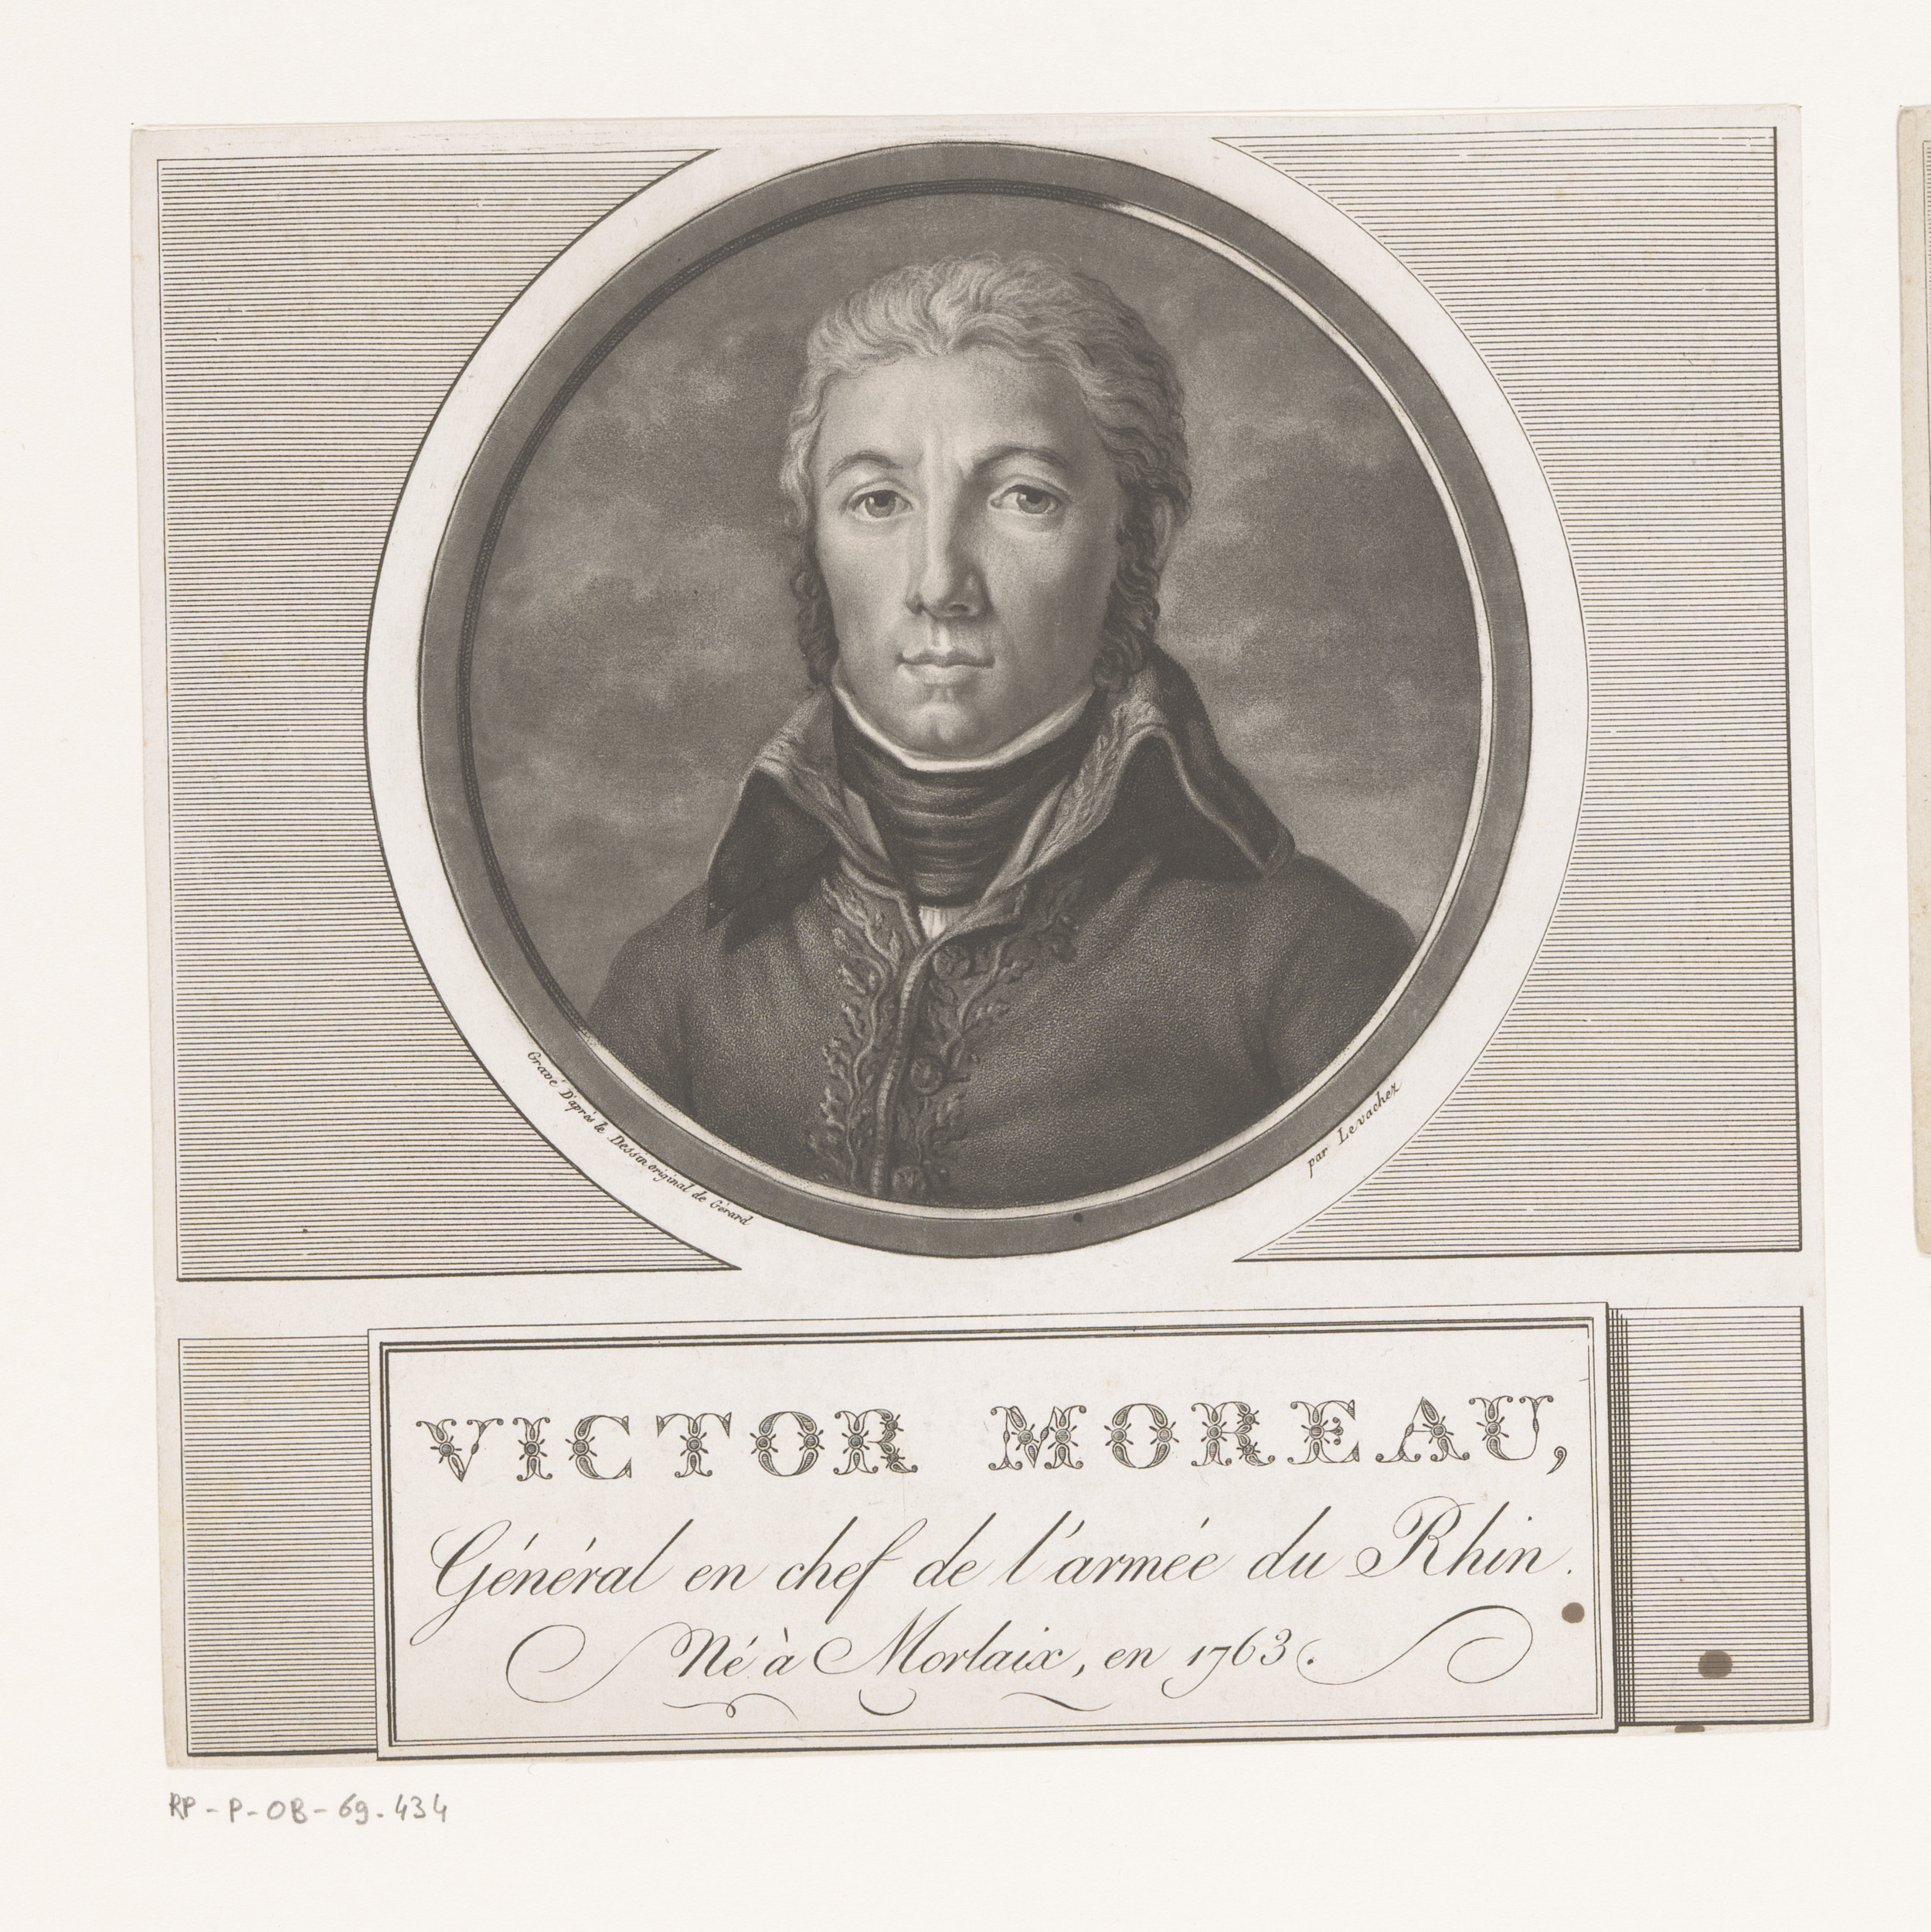 Gravé D'après le Dessin original de Gérard
par Levachez
VICTOR MOREAU,
Général en chef de l'armée du Rhin.
Né à Morlaix, en 1763.
RP-P-OB-69.434